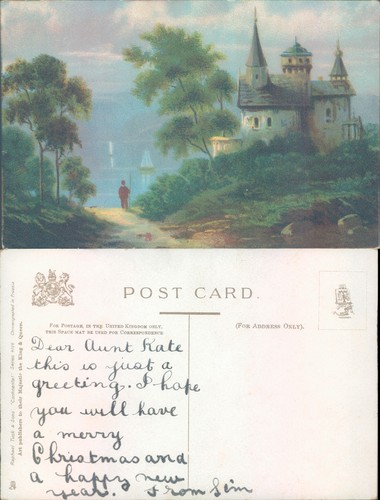 POST CARD.
FOR POSTAGE, IN THE UNITED KINGDOM ONLY,
THIS SPACE MAY BE USED FOR CORRESPONDENCE
(FOR ADDRESS ONLY).
Dear Aunt Kate
this is just a
greeting. I hope
you will have
a merry
Christmas and
a happy new
year. From
Art publishers to their Majesties the King & Queen.